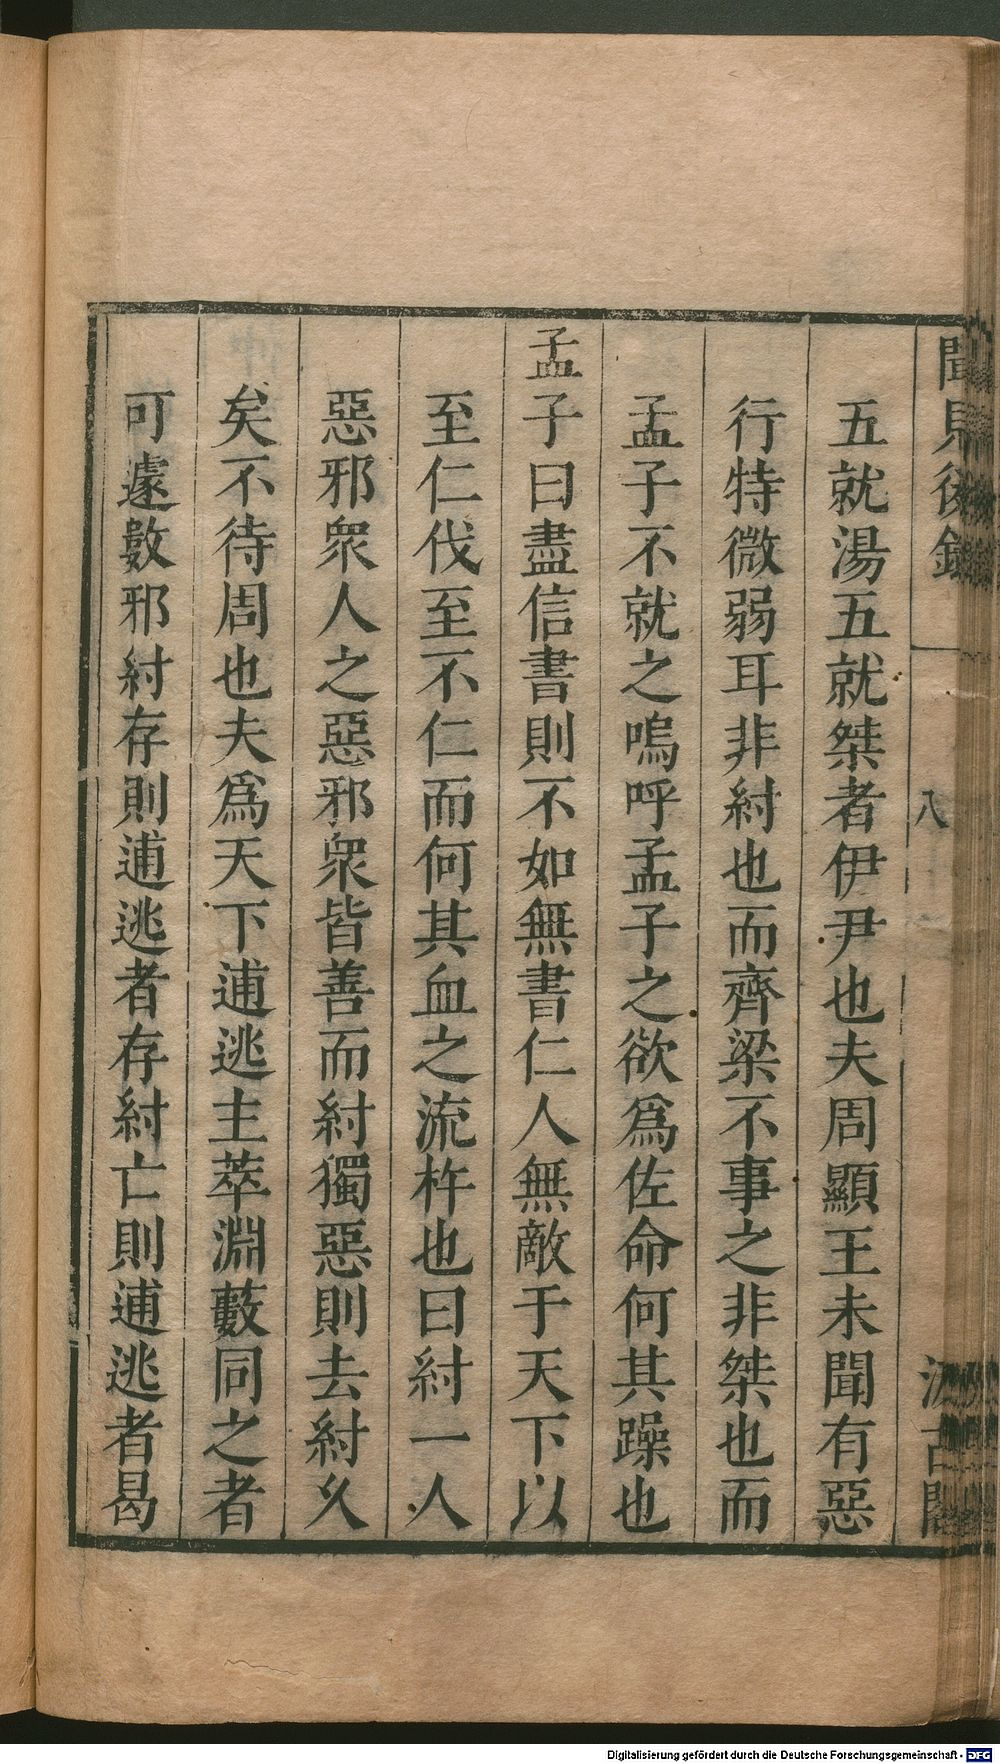 聞見後錄
八
汲古閣
五就湯五就桀者伊尹也夫周顯王未聞有惡
行特微弱耳非紂也而齊梁不事之非桀也而
孟子不就之嗚呼孟子之欲爲佐命何其躁也
孟子曰盡信書則不如無書仁人無敵于天下以
至仁伐至不仁而何其血之流杵也曰紂一人
惡邪衆人之惡邪衆皆善而紂獨惡則去紂久
矣不待周也夫爲天下逋逃主萃淵藪同之者
可遽數邪紂存則逋逃者存紂亡則逋逃者曷
Digitalisierung gefördert durch die Deutsche Forschungsgemeinschaft - DFG